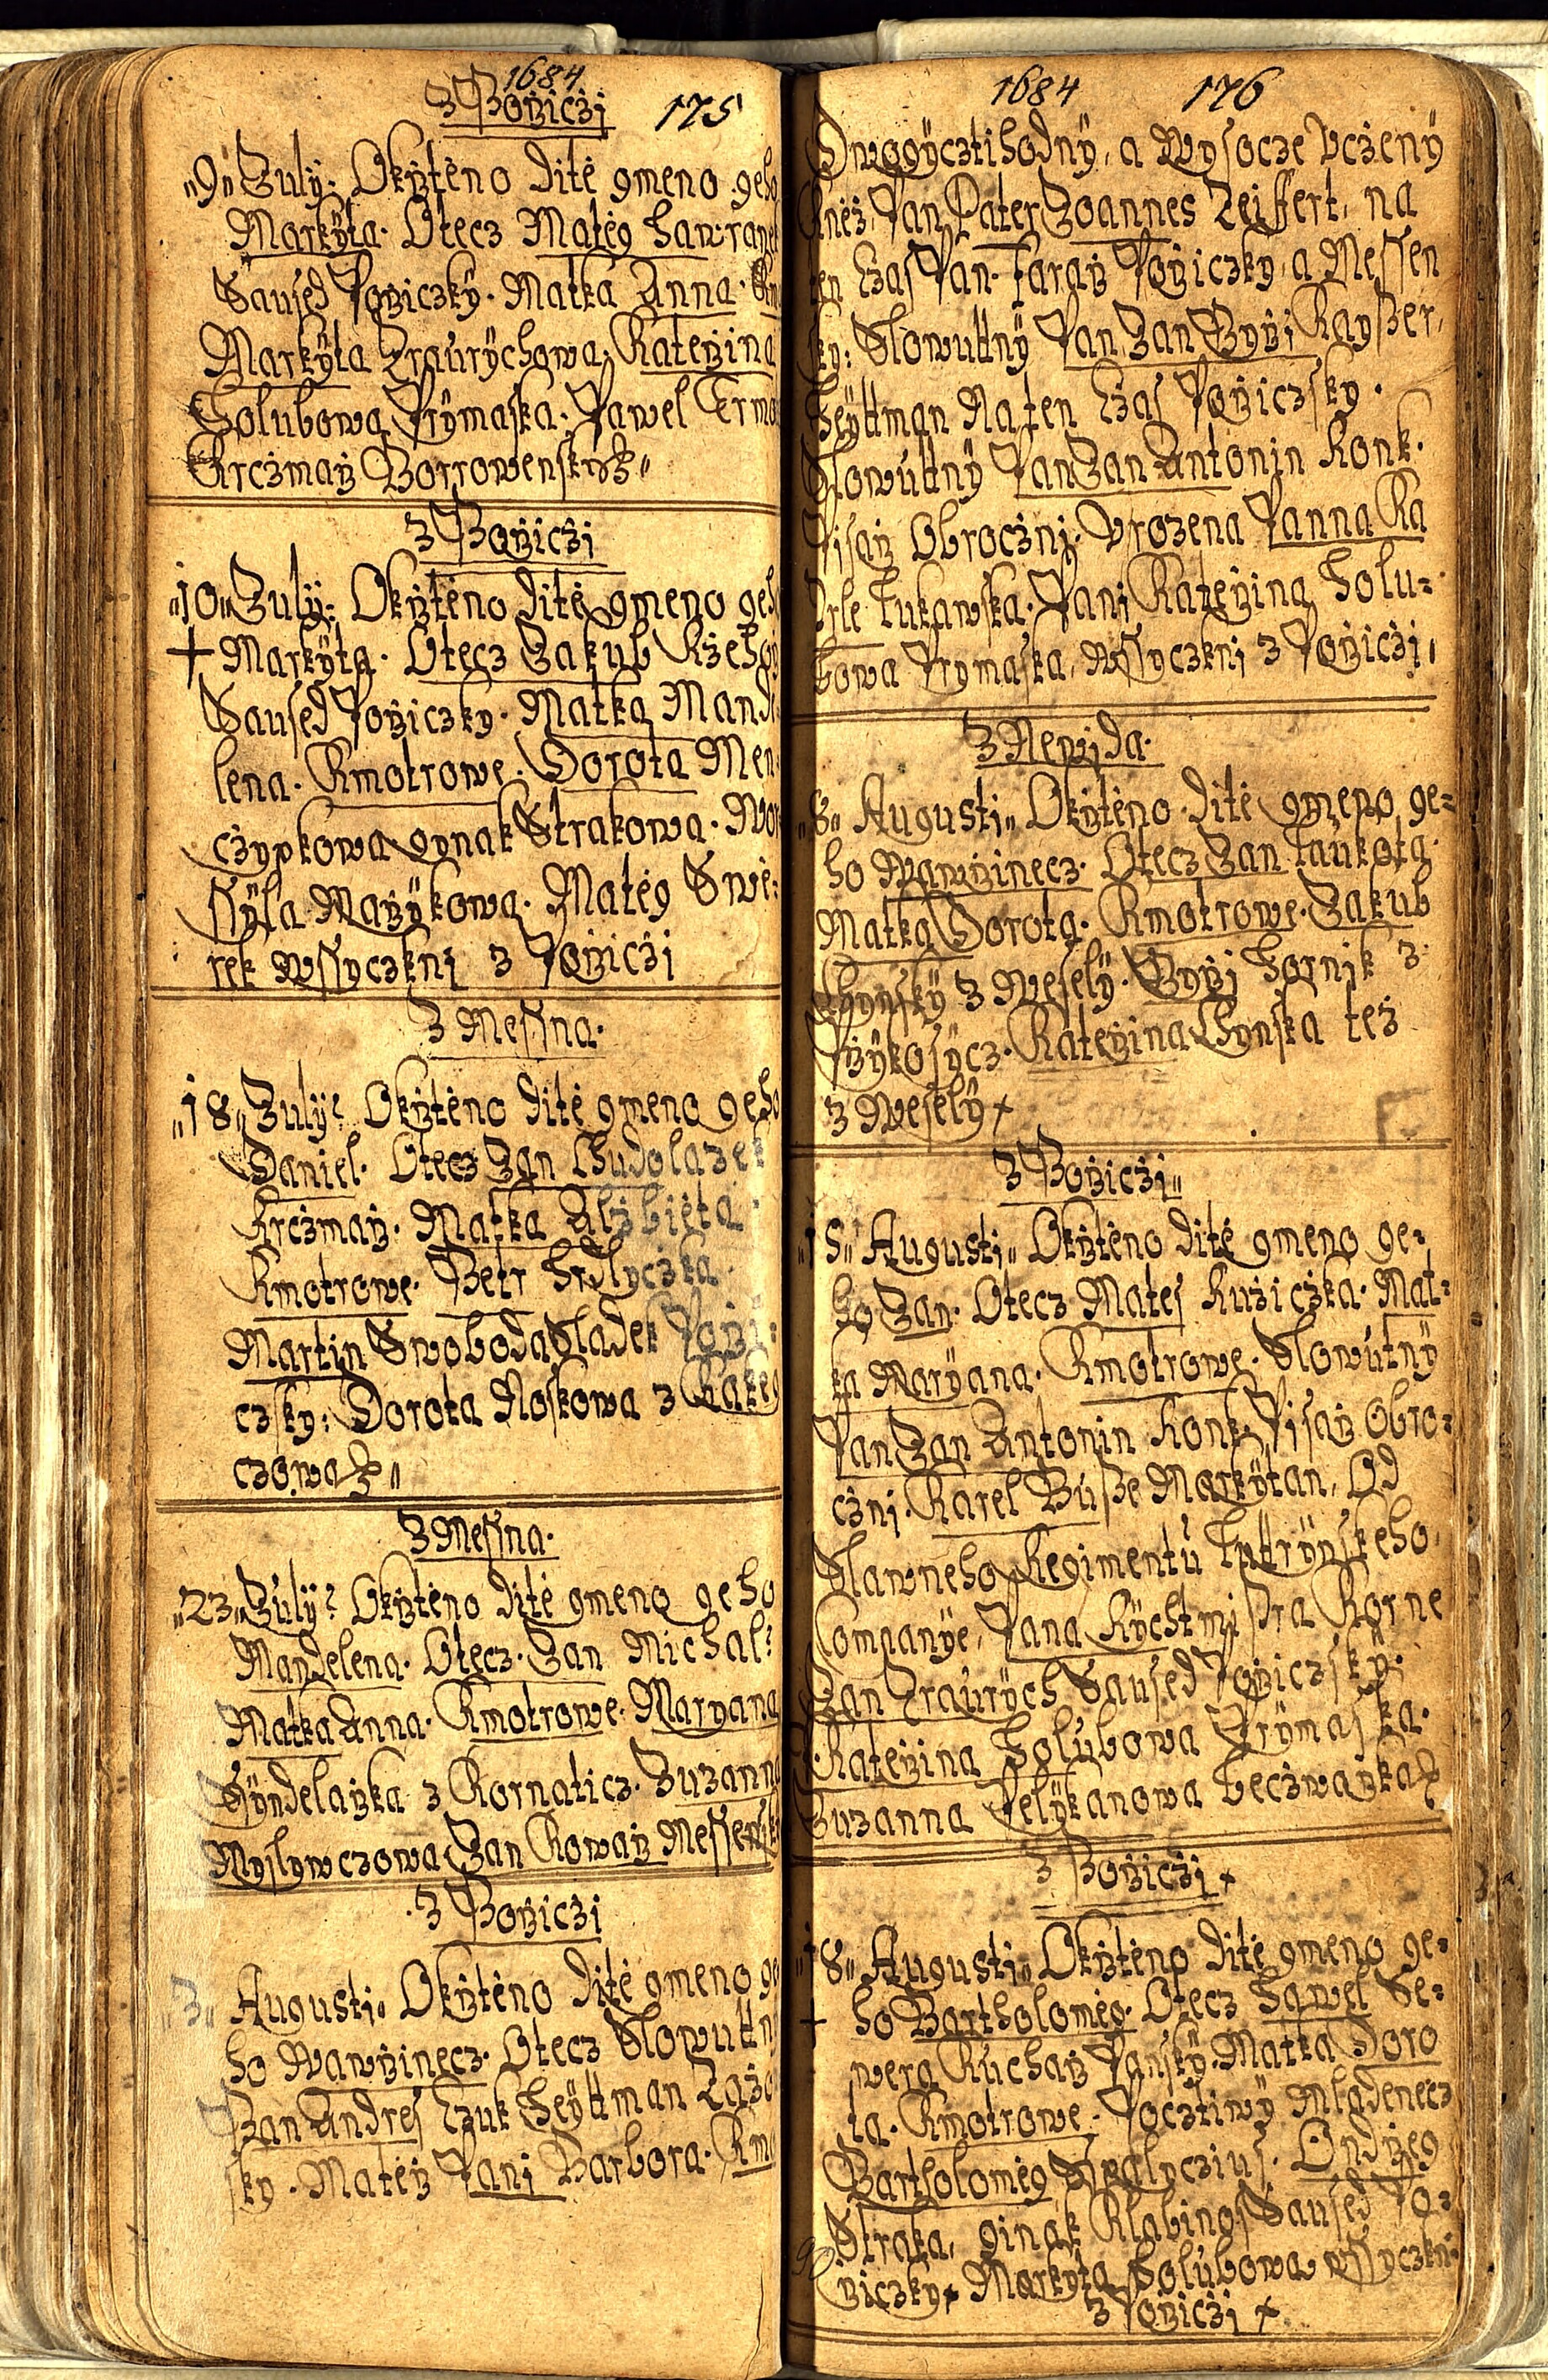 1684
z Pořiczi 175
"9" July. Okřtěno dítě gmeno geho
Markÿta. Otecz Matěg
Saused Pořiczký. Matka Anna.
Markÿta Kateřina
Holubowa Prÿmaska. Pawel
Krczmař Borrowenský
z Pořiczi
"10" July. Okřtěno dítě gmeno geh
+ Markÿta. Otecz Jakub
Saused Pořiczky. Matka Mand
lena. Kmotrowe. Dorota Men
czypkowa gynak Strakowa.
Mařÿkowa. Matěg Swě=
rek wssyczkni z Pořiczi
z Messna.
"18" July? Okřtěno dítě gmeno geho
Daniel. Otecz Jan Chudolazek
Krczmař. Matka Alžbieta.
Kmotrowe. Petr Hrdlyczka.
Martin Swoboda Sladek Pořj=
czsky: Dorota Noskowa z Rakeg
czowa"
z Messna.
"23" July? Okřtěno dítě gmeno geho
Mandelena. Otecz. Jan Michal:
Matka Anna. Kmotrowe. Maryana
Ssÿndelařka z Kornaticz. Zuzanna
Myslywczowa Jan Kowař Messensk
z Pořiczi
"3" Augusti" Okřtěno dítě gmeno ge
ho Wawřinecz. Otecz Slowuttn
Pan Andres Czuk Heÿttman
sky. Matěř Pani Barbora. Kmo
1684 176
Dwogÿcztihodnÿ, a Wysocze Vczenÿ
Kněz, Pan Pater Joannes Zeiffert, na
ten Czas Pan. Farař Pořiczky, a Messen
sky: Slowuttnÿ Pan Jan Gyři Kayßer,
Heÿttman Na ten Czas Pořiczsky.
Slowúttnÿ Pan Jan Antonin Honk.
Pisař Obroczni. Vrozena Panna Ka
Lukawska. Pani Kateřina Holu=
bowa Prymaska, Wssyczkni z Pořiczi.
z Newida.
"8" Augusti" Okřtěno dítě gmeno ge=
ho Wawřinecz. Otecz Jan Laukota.
Matka Dorota. Kmotrowe. Jakub
Chynský z Weselÿ. Gyři Hornik z
Přÿkosÿcz. Kateřina Chynska též
z Weselÿ +
z Pořiczi"
"15" Augusti" Okřtěno dítě gmeno ge=
ho Jan. Otecz Mates Kužiczka. Mat=
ka Marÿana. Kmotrowe. Slowútnÿ
Pan Jan Antonin Honk Pisař Obro=
czni. Karel Bußе Markÿtan, Od
Slawneho Regimentu
Companÿe, Pana Rÿchtmistra Korne
Jan Saused Pořiczskÿ.
Kateřina Holúbowa Prÿmaska.
Zuzanna Pelÿkanowa
z Pořiczi +
"18" Augusti" Okřtěno dítě gmeno ge=
+ ho Bartholoměg. Otecz Hawel Se=
wera Kuchař Panskÿ. Matka Doro
ta. Kmotrowe. Pocztiwÿ Mládenecz
Bartholoměg Ondřeg
Straka, ginak Saused Po=
řiczky + Markyta Holúbowa wssyczkni
z Pořiczi +